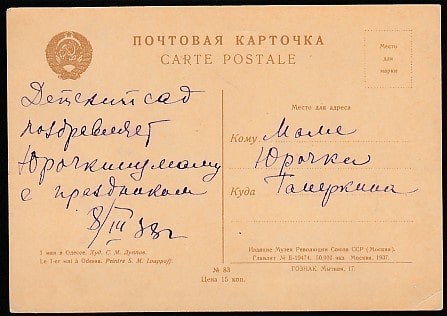 ПОЧТОВАЯ КАРТОЧКА
CARTE POSTALE
Место
для
марки
Детский сад
поздравляет
Юрочкину маму
с праздником
8/III 38 г
Место для адреса
Кому Маме
Юрочки
Куда Гаперкина
1 мая в Одессе. Худ. С. М. Луппов.
Le 1-er mai à Odessa. Peintre S. M. Louppoff.
№ 83
Цена 15 коп.
Издание Музея Революции Союза ССР (Москва).
Главлит № Б-19474. 50.000 экз Москва, 1937.
РОЗНАК. Мытная, 17.